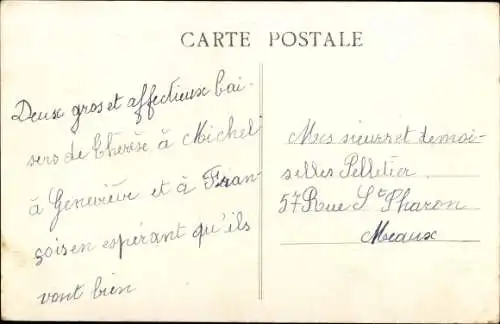 CARTE POSTALE
Deux gros et affectieux bai-
sers de Thérèse à Michel
à Geneviève et à Fran-
çois en espérant qu'ils
vont bien
Mes sieurs et demoi-
selles Pelletier
57 Rue St Pharon
Meaux